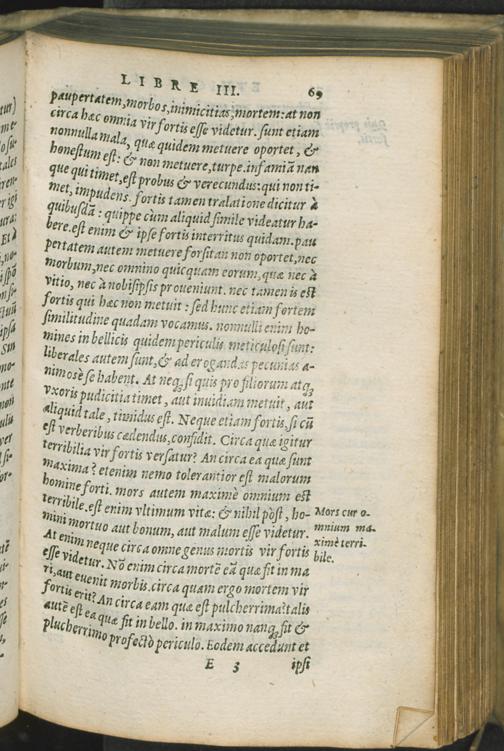 LIBRE III. 69
paupertatem, morbos, inimicitias, mortem: at non
circa hæc omnia vir fortis esse videtur. sunt etiam
nonnulla mala, quæ quidem metuere oportet, &
honestum est: & non metuere, turpe. infamiā nan
que qui timet, est probus & verecundus: qui non ti-
met, impudens. fortis tamen tralatione dicitur à
quibusdā: quippe cùm aliquid simile videatur ha-
bere. est enim & ipse fortis interritus quidam. pau
pertatem autem metuere forsitan non oportet, nec
morbum, nec omnino quicquam eorum, quæ nec à
vitio, nec à nobisipsis proueniunt. nec tamen is est
fortis qui hæc non metuit: sed hunc etiam fortem
similitudine quadam vocamus. nonnulli enim ho-
mines in bellicis quidem periculis meticulosi sunt:
liberales autem sunt, & ad erogandas pecunias a-
nimosè se habent. At neq; si quis pro filiorum atq;
vxoris pudicitia timet, aut inuidiam metuit, aut
aliquid tale, timidus est. Neque etiam fortis, si cū
est verberibus cædendus, confidit. Circa quæ igitur
terribilia vir fortis versatur? An circa ea quæ sunt
maxima? etenim nemo tolerantior est malorum
homine forti. mors autem maximè omnium est
terribile. est enim vltimum vitæ: & nihil pòst, ho-
mini mortuo aut bonum, aut malum esse videtur.
At enim neque circa omne genus mortis vir fortis
esse videtur. Nō enim circa mortē eā quæ fit in ma
ri, aut euenit morbis. circa quam ergo mortem vir
fortis erit? An circa eam quæ est pulcherrima? talis
autē est ea quæ fit in bello. in maximo nanq; fit &
plucherrimo profectò periculo. Eodem accedunt et
E 3 ipsi
Mors cur o-
mnium ma-
ximè terri-
bile.